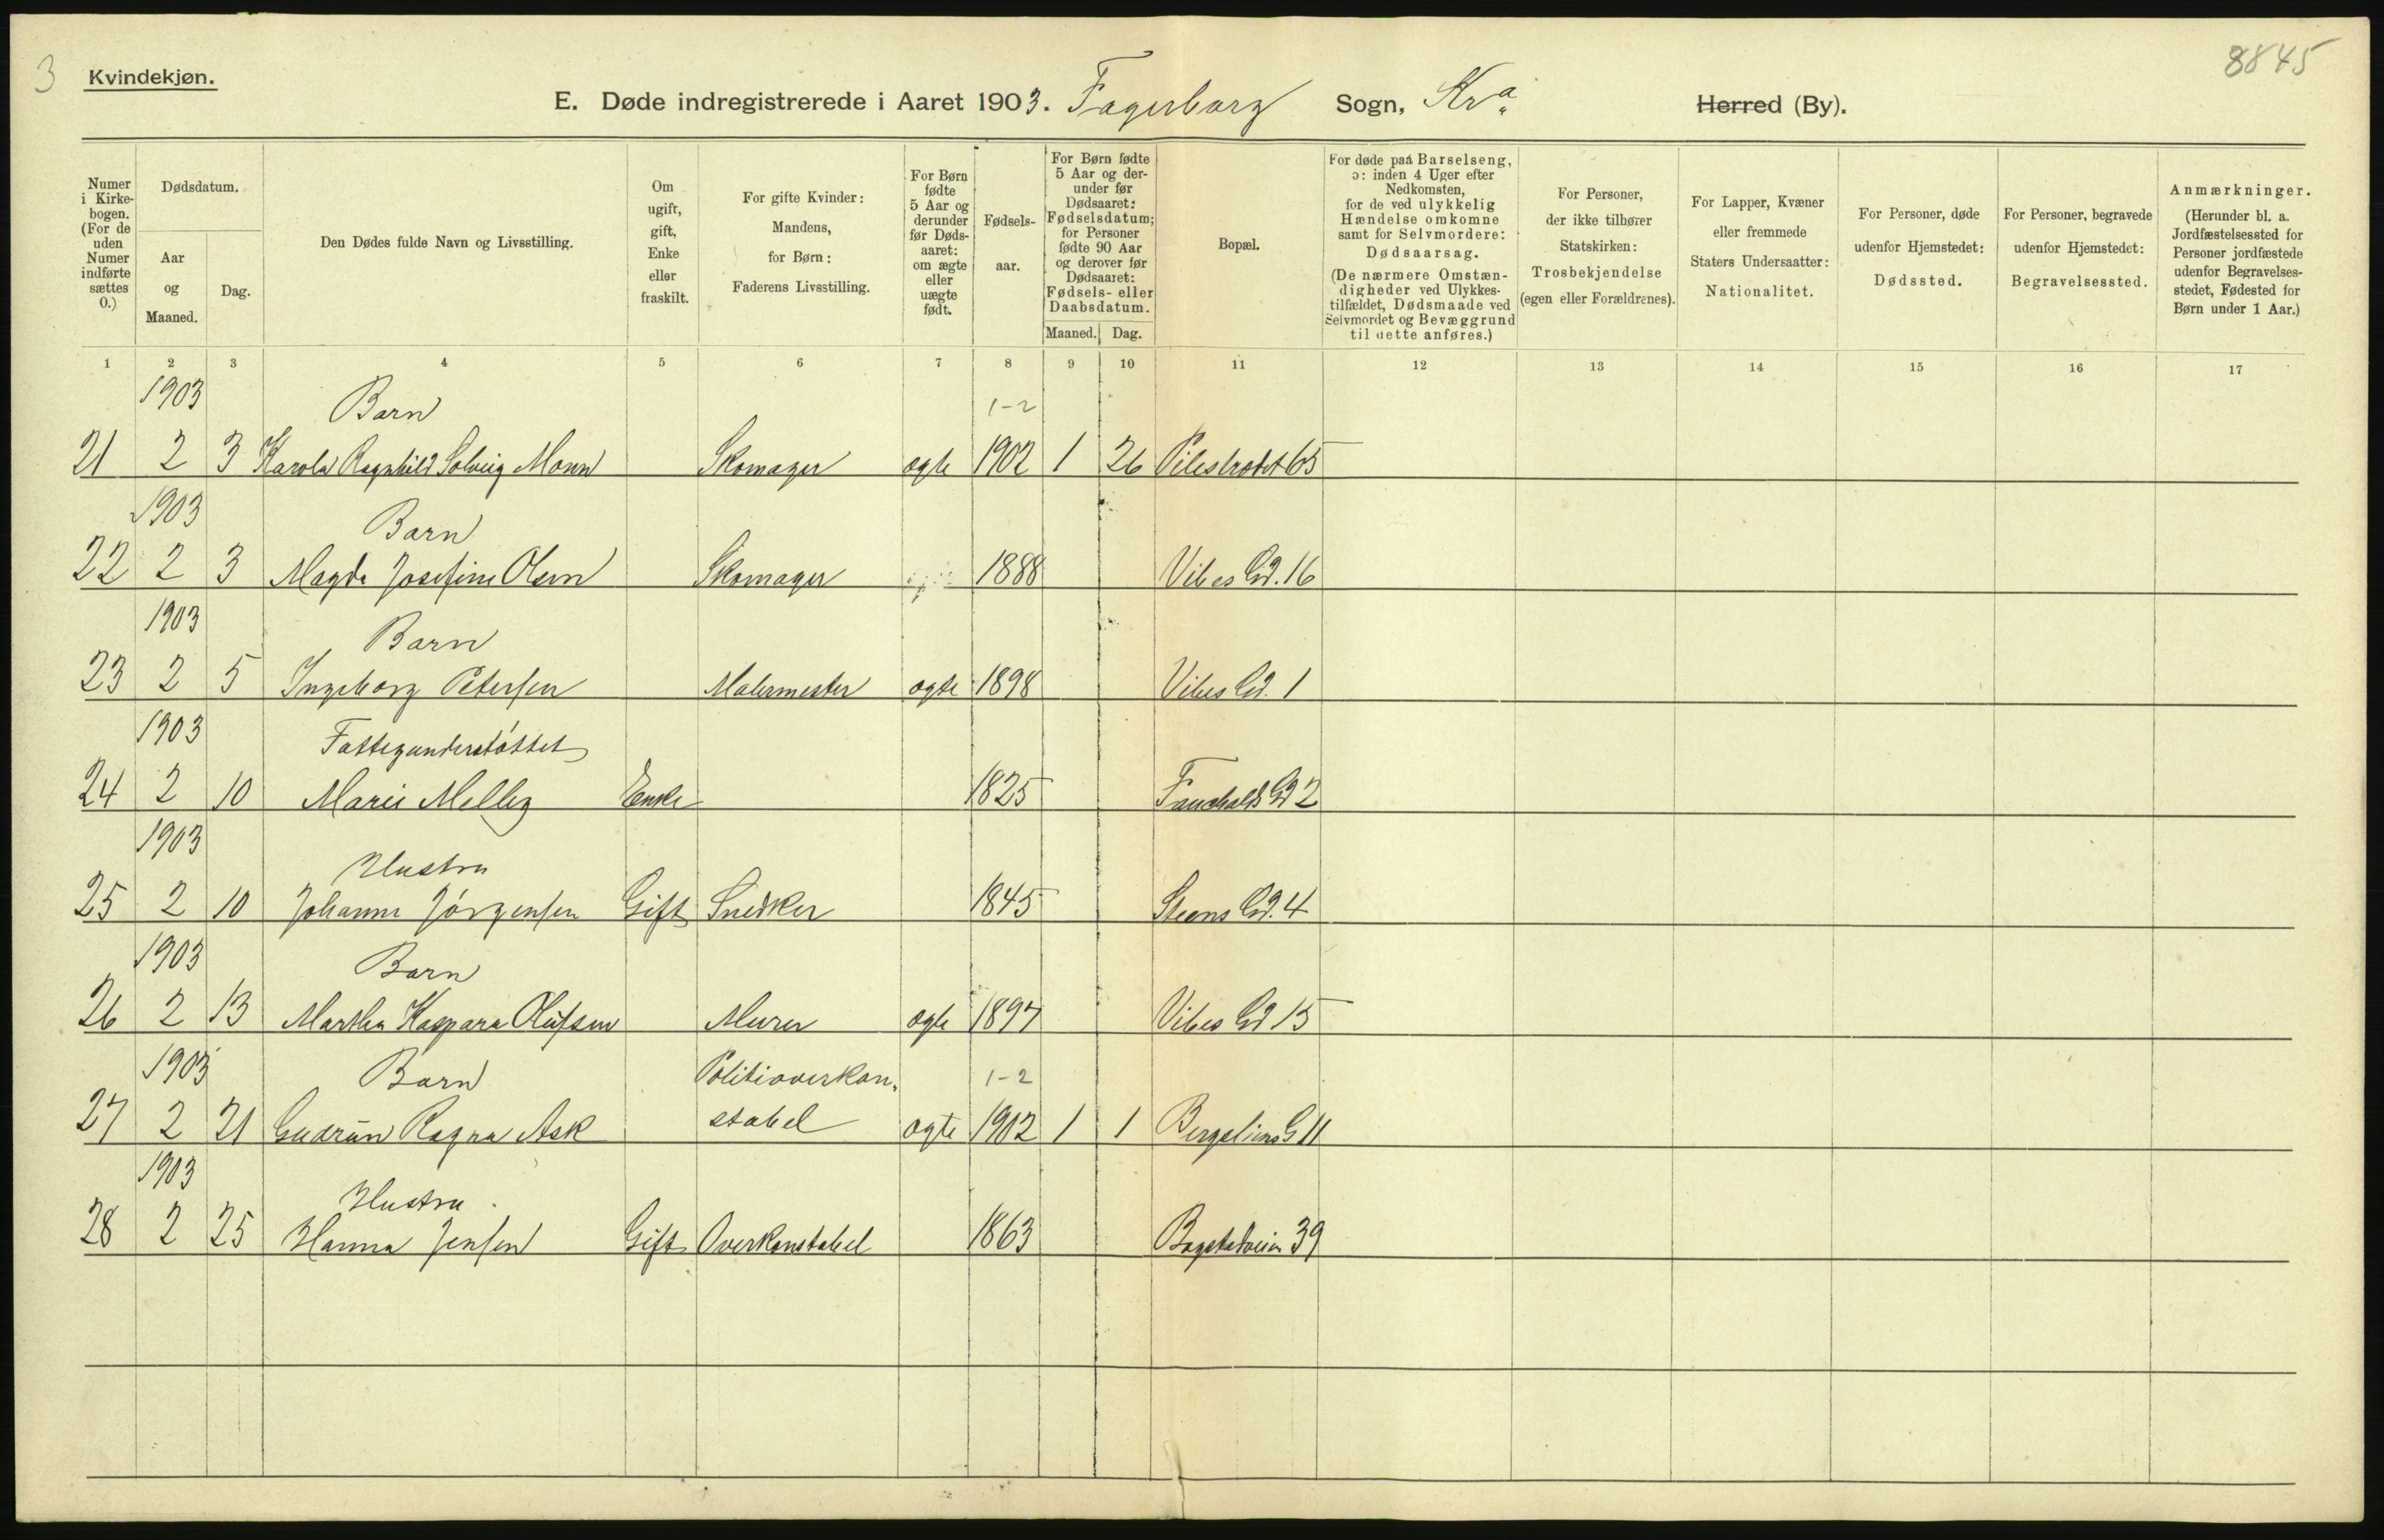 3
Kvindekjøn.
8845
E. Døde indregistrerede i Aaret 1903. Fagerborg Sogn, Kra Herred (By).
Numer i Kirke-bogen. (For de uden Numer indførte sættes 0.)
Dødsdatum.
Aar og Maaned.
Dag.
Den Dødes fulde Navn og Livsstilling.
Om ugift, gift, Enke eller fraskilt.
For gifte Kvinder: Mandens, for Børn: Faderens Livsstilling.
For Børn fødte 5 Aar og derunder før Døds-aaret: om ægte eller uægte født.
Fødsels-aar.
For Børn fødte 5 Aar og der-under før Dødsaaret: Fødselsdatum; for Personer fødte 90 Aar og derover før Dødsaaret: Fødsels- eller Daabsdatum.
Maaned. Dag.
Bopæl.
For døde paa Barselseng, ɔ: inden 4 Uger efter Nedkomsten, for de ved ulykkelig Hændelse omkomne samt for Selvmordere: Dødsaarsag. (De nærmere Omstæn-digheder ved Ulykkes-tilfældet, Dødsmaade ved Selvmordet og Bevæggrund til dette anføres.)
For Personer, der ikke tilhører Statskirken: Trosbekjendelse (egen eller Forældrenes).
For Lapper, Kvæner eller fremmede Staters Undersaatter: Nationalitet.
For Personer, døde udenfor Hjemstedet: Dødssted.
For Personer, begravede udenfor Hjemstedet: Begravelsessted.
Anmærkninger. (Herunder bl. a. Jordfæstelsessted for Personer jordfæstede udenfor Begravelses-stedet, Fødested for Børn under 1 Aar.)
1 2 3 4 5 6 7 8 9 10 11 12 13 14 15 16 17
1903 Barn 1-2
21 2 3 Karola Ragnhild Solveig Moun Skomager ægte 1902 1 26 Pilestrædet 65
1903 Barn
22 2 3 Magda Josefine Olsen Skomager 1888 Vibes Gd. 16
1903 Barn
23 2 5 Ingeborg Petersen Malermester ægte 1898 Vibes Gd. 1
1903 Fattigunderstøttet
24 2 10 Marie Melby Enke 1825 Fauchalds Gd 2
1903 Hustru
25 2 10 Johanne Jørgensen Gift Snedker 1845 Steens Gd. 4
1903 Barn
26 2 13 Martha Kaspara Olufsen Murer ægte 1897 Vibes Gd 15
1903 Barn Politioverkon- 1-2
27 2 21 Gudrun Ragna Ask stabel ægte 1902 1 1 Bergsliens G 11
1903 Hustru
28 2 25 Hanna Jensen Gift Overkonstabel 1863 Bogstadveien 39